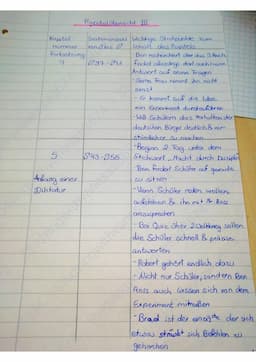 Kapitelübersicht III
Kapitel
nummer
Fortsetzung
4
Seitenanzahl
von/bis S.
S.37-S.42
Wichtige Stichpunkte zum
Inhalt des Kapitels
- Ben recherchiert über das 3. Reich,
findet allerdings dort auch keine
Antwort auf seine Fragen
- Seine Frau nimmt ihn nicht
ernst
- Er kommt auf die Idee
ein Experiment durchzuführen
- Will Schülern das Verhalten der
deutschen Bürger deutlich & ver-
ständlicher zu machen
5
Anfang einer
Diktatur
S.43-S.56
- Beginn 2. Tag unter dem
Stichwort „Macht durch Disziplin"
- Ben fordert Schüler auf gerade
zu sitzen
- Wenn Schüler reden wollen,
aufstehen & ihn mit Mr. Ross
ansprechen
- Bei Quiz über 2. Weltkrieg sollen
die Schüler schnell & präzise
antworten
- Robert gehört endlich dazu
- Nicht nur Schüler, sondern Ben
Ross auch lassen sich von dem
Experiment mitreißen
- Brad ist der einzige der sich
etwas sträubt sich Befehlen zu
gehorchen